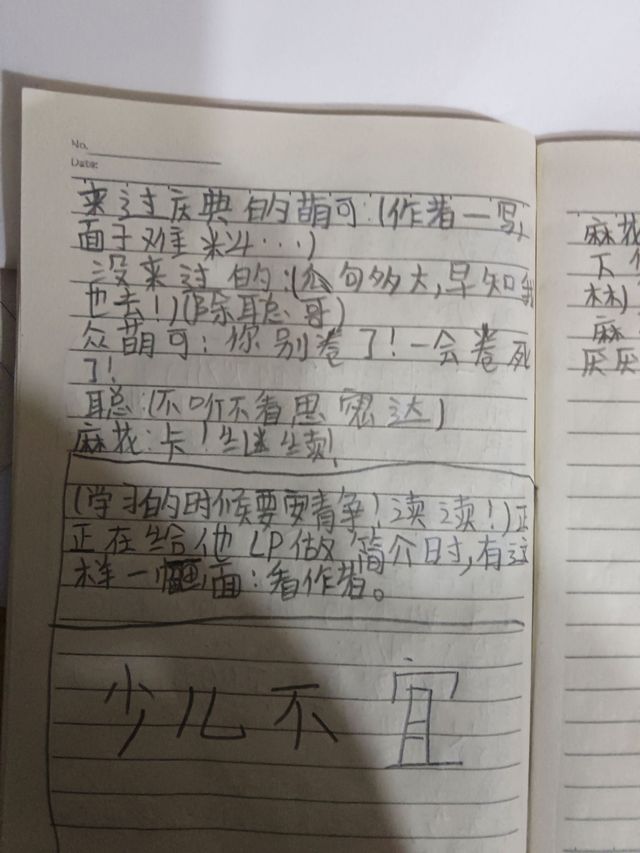 No.
Date:
来过庆典的萌可:(作者一写,
面子难米斗···)
没来过的:(公句多大,早知我
也去!)(除聪哥)
众萌可:你别卷了!一会卷死
了!
聪:(不听不看思密达)
麻花:卡!继续!
(学习的时候要安青争!读读!)正
正在给他LP做简介时,有这
样一画面:看作者。
少儿不宜
麻花
下
林)
麻
厌厌